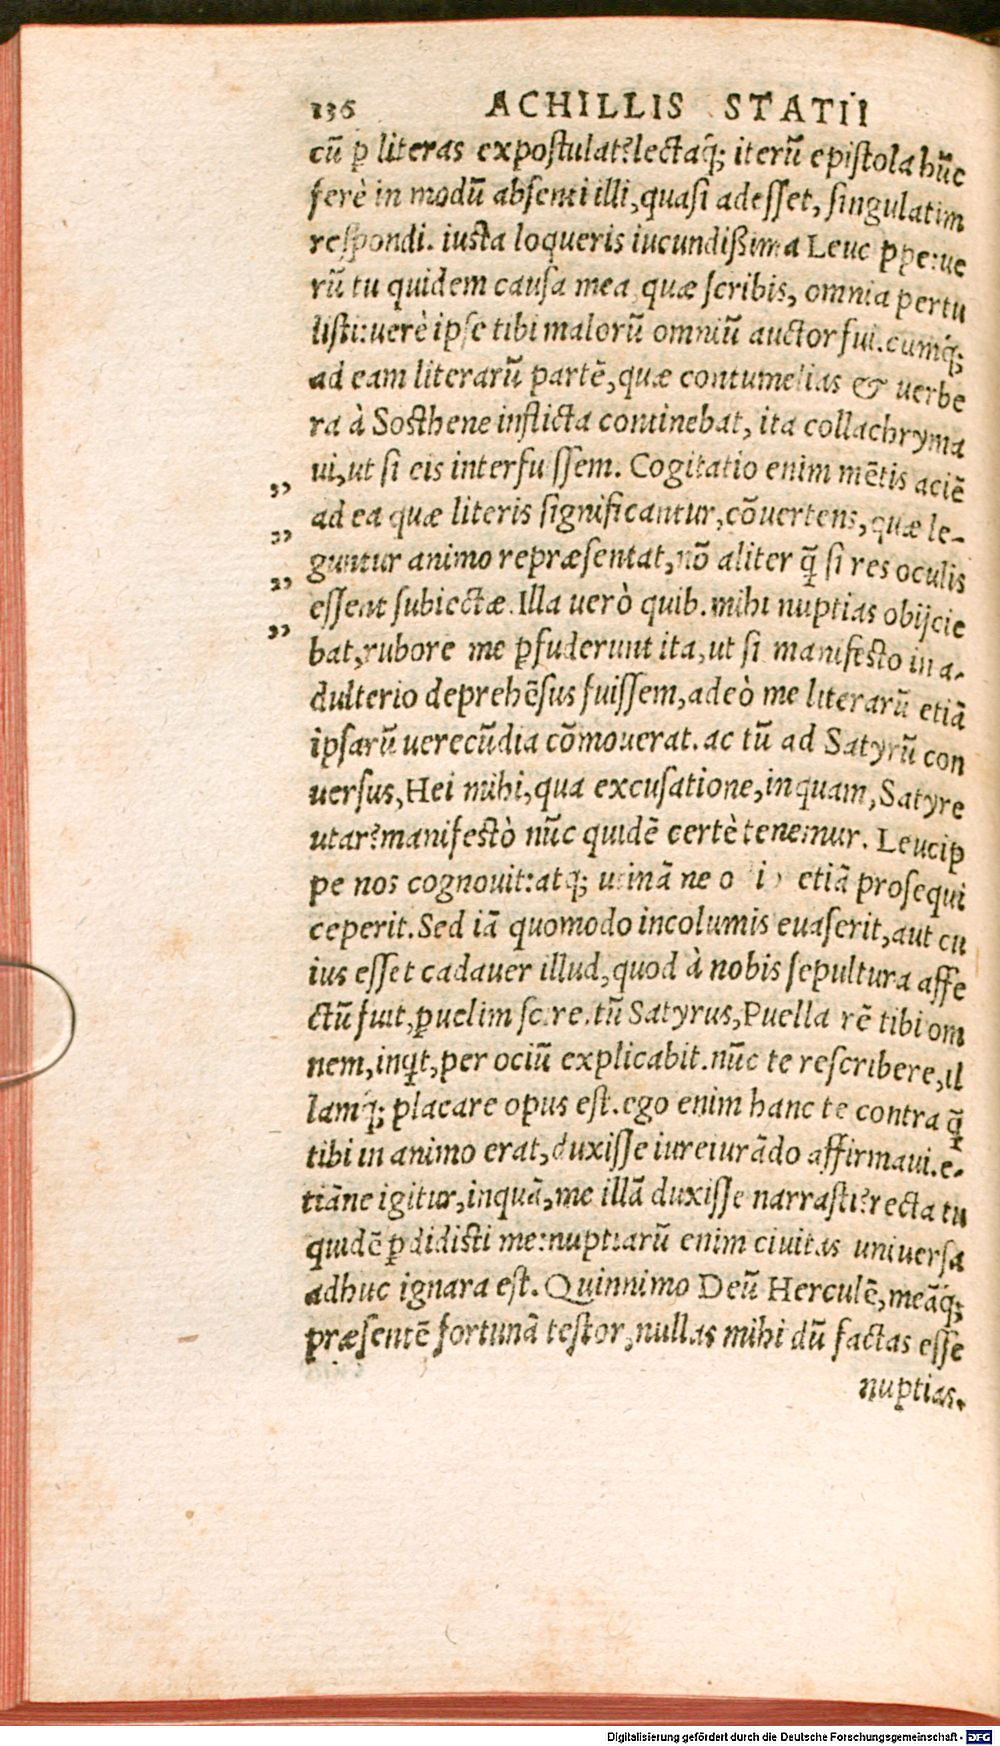 136 ACHILLIS STATII
cū ꝑ literas expostulat?lectaq́; iterū epistola hūc
ferè in modū absenti illi,quasi adesset, singulatim
respondi. iusta loqueris iucundißima Leuc ppe:ue
rū tu quidem causa mea quæ scribis, omnia pertu
listi:uerè ipse tibi malorū omniū auctor fui.cumq́;
ad eam literarū partē,quæ contumelias & uerbe
ra à Sosthene inflicta continebat, ita collachryma
ui,ut si eis interfuissem. Cogitatio enim mētis aciē
„ ad ea quæ literis significantur,cōuertens,quæ le-
„ guntur animo repræsentat,nō aliter q̄ si res oculis
„ essent subiectæ.Illa uerò quib.mihi nuptias obijcie
„ bat,rubore me ꝑfuderunt ita,ut si manifesto in a-
dulterio deprehēsus fuissem,adeò me literarū etiā
ipsarū uerecūdia cōmouerat.ac tū ad Satyrū con
uersus,Hei mihi,qua excusatione,inquam,Satyre
utar?manifestò nūc quidē certè tenemur. Leucip
pe nos cognouit:atq; utinā ne etiā prosequi
ceperit.Sed iā quomodo incolumis euaserit,aut cu
ius esset cadauer illud,quod à nobis sepultura affe
ctū fuit,ꝑuelim scire.tū Satyrus,Puella rē tibi om
nem,inqt,per ociū explicabit.nūc te rescribere,il
lamq́; placare opus est.ego enim hanc te contra q̄
tibi in animo erat,duxisse iureiurādo affirmaui.e-
tiāne igitur,inquā,me illā duxisse narrasti?recta tu
quidē ꝑdidisti me:nuptiarū enim ciuitas uniuersa
adhuc ignara est. Quinnimo Deū Herculē,meāq́;
præsentē fortunā testor,nullas mihi dū factas esse
nuptias.
Digitalisierung gefördert durch die Deutsche Forschungsgemeinschaft - DFG